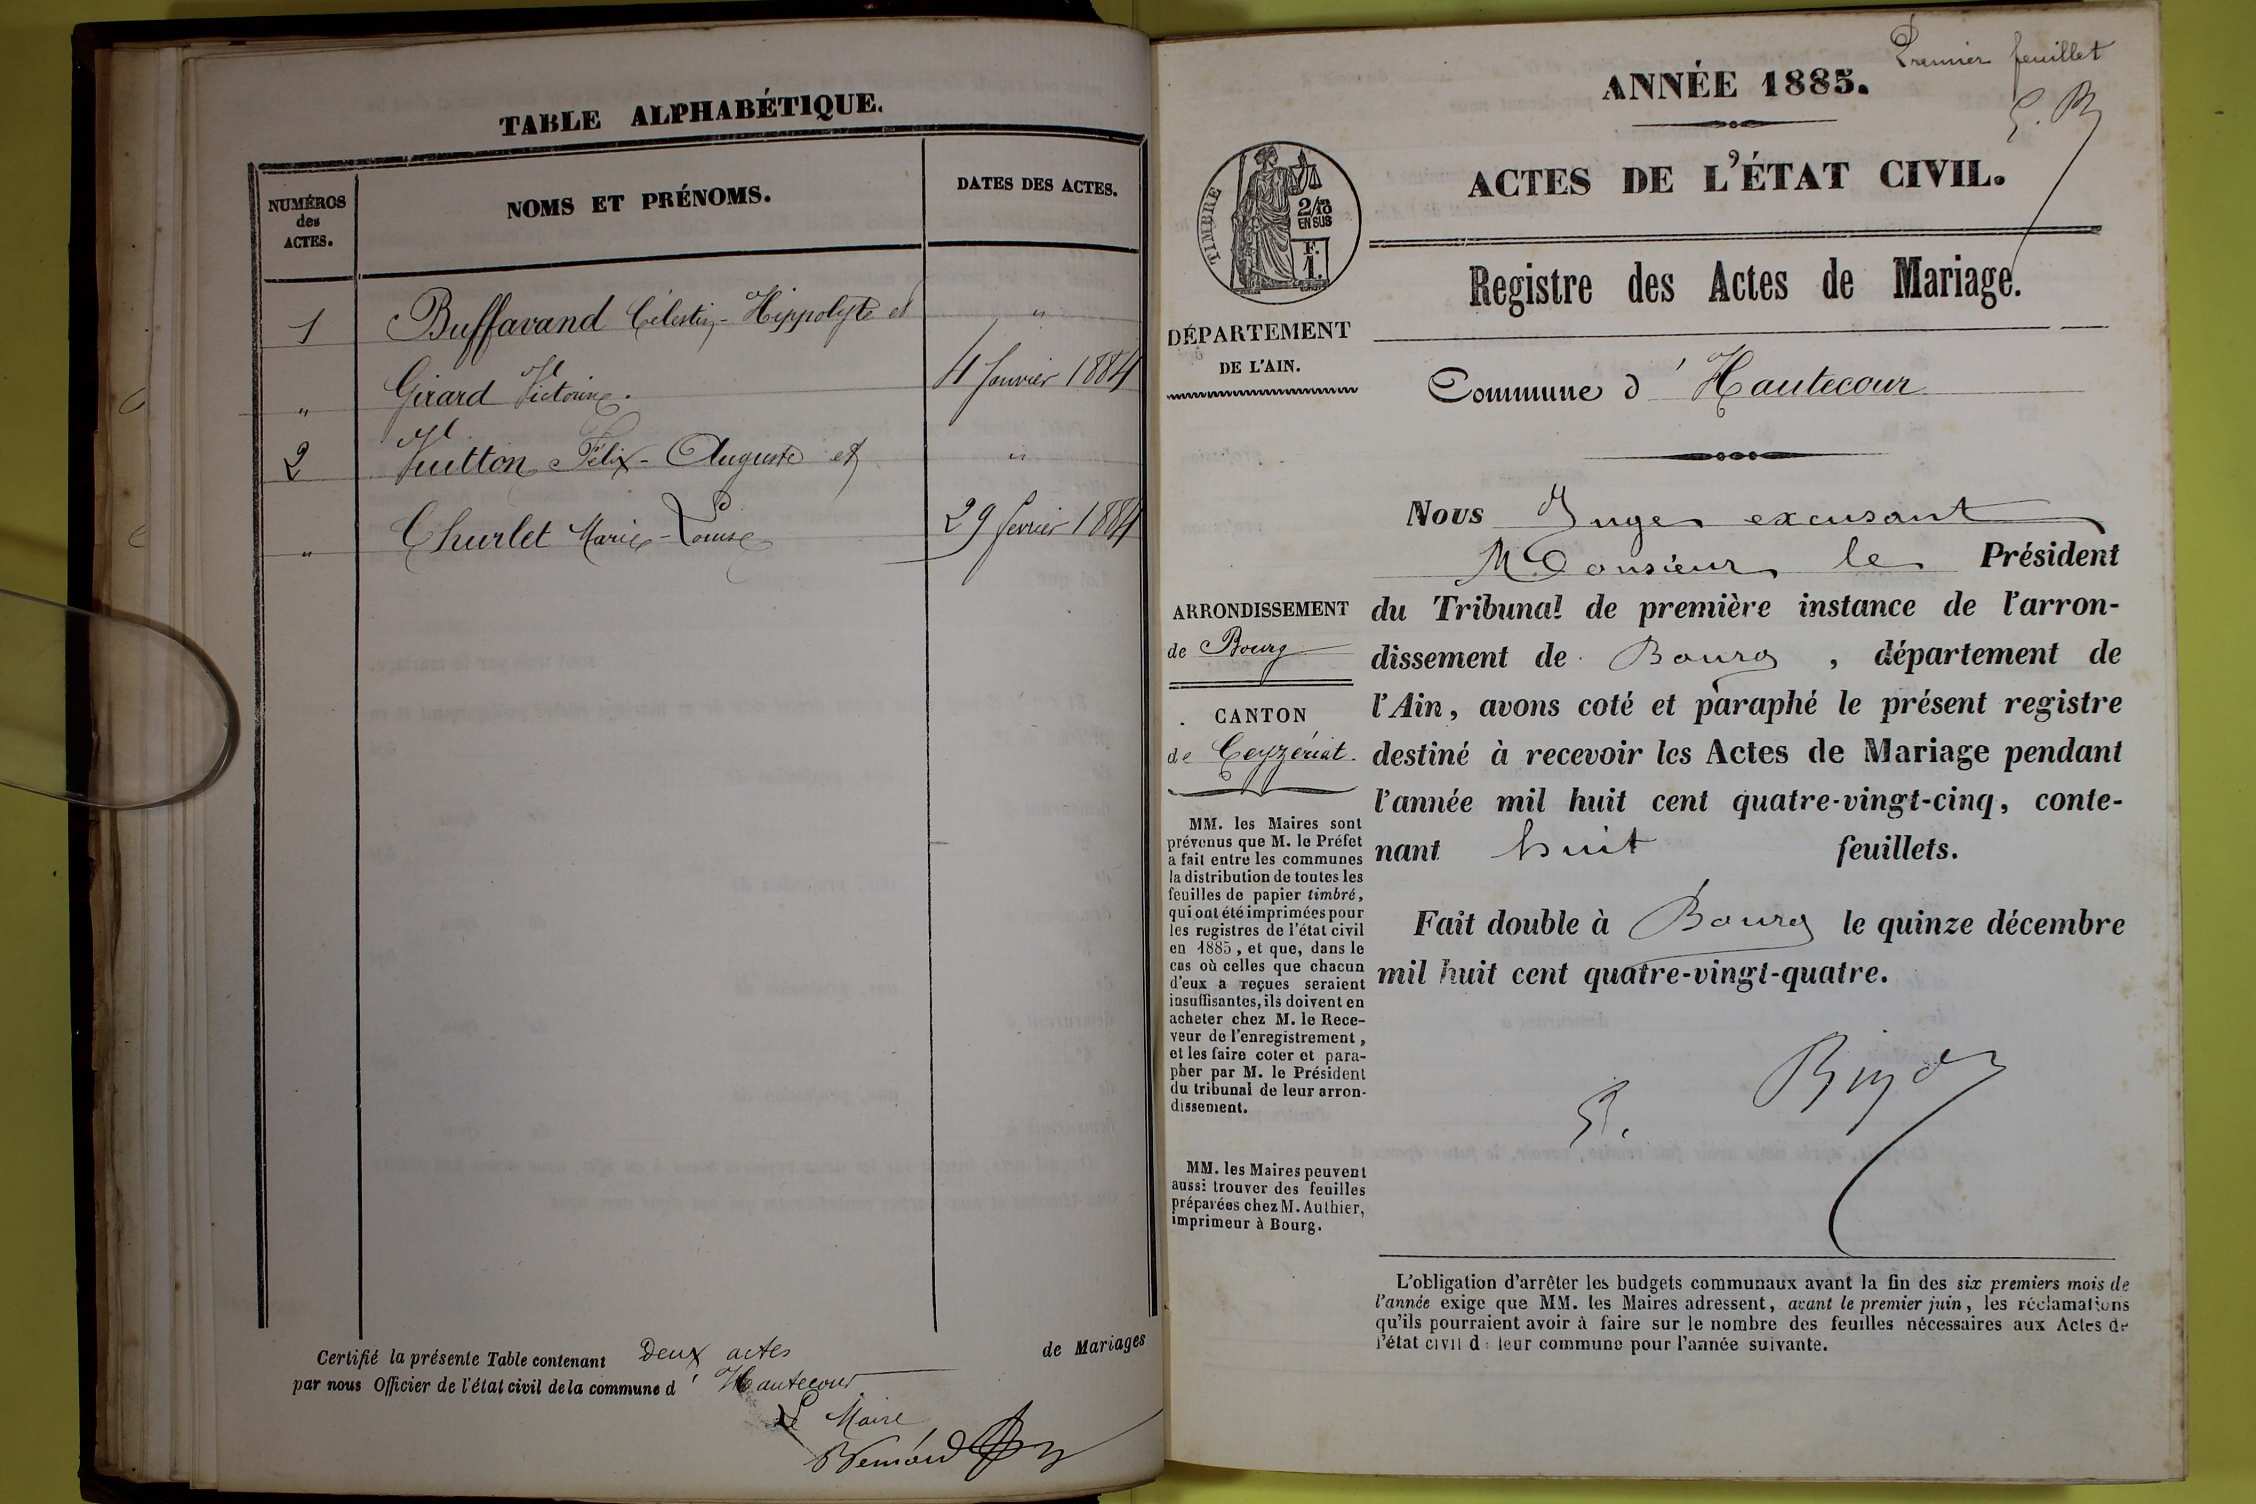 TABLE ALPHABÉTIQUE.
NUMÉROS
des
ACTES.
NOMS ET PRÉNOMS.
DATES DES ACTES.
1 Buffavand Célestin-Hippolyte et "
" Girard Victorine. 4 Janvier 1884
2 Vuitton Félix-Auguste et "
" Churlet Marie-Louise 29 fevrier 1884
Certifié la présente Table contenant Deux actes de Mariages
par nous Officier de l'état civil de la commune d' Hautecour
Le Maire
Premier feuillet
ANNÉE 1885.
ACTES DE L'ÉTAT CIVIL.
TIMBRE
2/10
EN SUS
F.
1.
Registre des Actes de Mariage.
DÉPARTEMENT
DE L'AIN.
Commune d'Hautecour
ARRONDISSEMENT
de Bourg
CANTON
de Ceyzériat.
MM. les Maires sont
prévenus que M. le Préfet
a fait entre les communes
la distribution de toutes les
feuilles de papier timbré,
qui ont été imprimées pour
les registres de l'état civil
en 1885, et que, dans le
cas où celles que chacun
d'eux a reçues seraient
insuffisantes, ils doivent en
acheter chez M. le Rece-
veur de l'enregistrement,
et les faire coter et para-
pher par M. le Président
du tribunal de leur arron-
dissement.
MM. les Maires peuvent
aussi trouver des feuilles
préparées chez M. Authier,
imprimeur à Bourg.
Nous Juge excusant
Monsieur le Président
du Tribunal de première instance de l'arron-
dissement de Bourg, département de
l'Ain, avons coté et paraphé le présent registre
destiné à recevoir les Actes de Mariage pendant
l'année mil huit cent quatre-vingt-cinq, conte-
nant huit feuillets.
Fait double à Bourg le quinze décembre
mil huit cent quatre-vingt-quatre.
L'obligation d'arrêter les budgets communaux avant la fin des six premiers mois de
l'année exige que MM. les Maires adressent, avant le premier juin, les réclamations
qu'ils pourraient avoir à faire sur le nombre des feuilles nécessaires aux Actes de
l'état civil de leur commune pour l'année suivante.